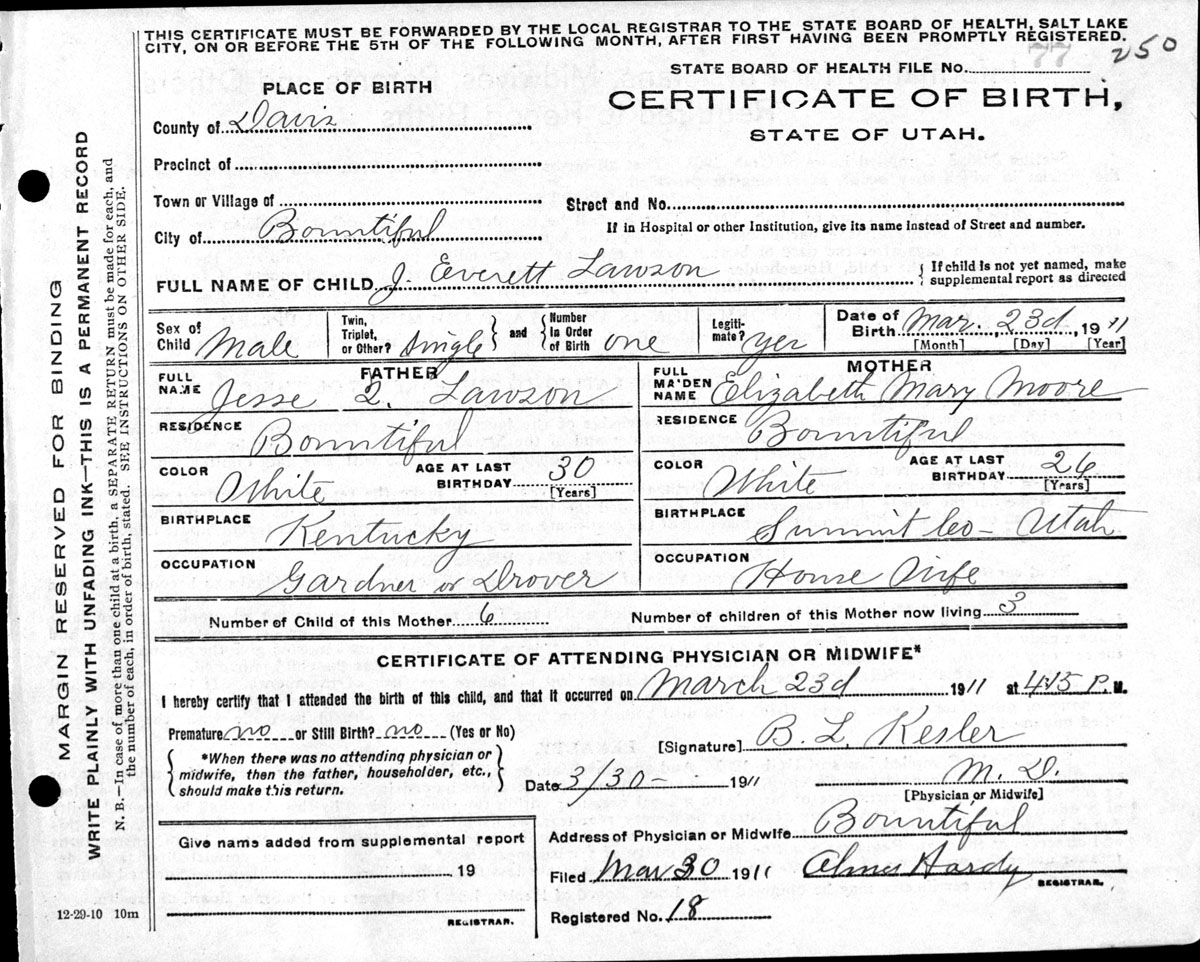 THIS CERTIFICATE MUST BE FORWARDED BY THE LOCAL REGISTRAR TO THE STATE BOARD OF HEALTH, SALT LAKE
CITY, ON OR BEFORE THE 5TH OF THE FOLLOWING MONTH, AFTER FIRST HAVING BEEN PROMPTLY REGISTERED.
77 250
STATE BOARD OF HEALTH FILE No.
PLACE OF BIRTH
CERTIFICATE OF BIRTH,
STATE OF UTAH.
County of Davis
Precinct of
Town or Village of
Street and No.
City of Bountiful
If in Hospital or other Institution, give its name instead of Street and number.
FULL NAME OF CHILD J. Everett Lawson
{ If child is not yet named, make
supplemental report as directed
Sex of Child Male
Twin, Triplet, or Other? Single } and { Number in Order of Birth one
Legiti-mate? yes
Date of Birth Mar. 23d, 1911
[Month] [Day] [Year]
FATHER
FULL NAME Jesse Lawson
RESIDENCE Bountiful
COLOR White
AGE AT LAST BIRTHDAY 30
[Years]
BIRTHPLACE Kentucky
OCCUPATION Gardner or Drover
MOTHER
FULL MAIDEN NAME Elizabeth Mary Moore
RESIDENCE Bountiful
COLOR White
AGE AT LAST BIRTHDAY 26
[Years]
BIRTHPLACE Summit Co- Utah
OCCUPATION House Wife
Number of Child of this Mother 6
Number of children of this Mother now living 3
CERTIFICATE OF ATTENDING PHYSICIAN OR MIDWIFE*
I hereby certify that I attended the birth of this child, and that it occurred on March 23d 1911 at 4:15 P. M.
Premature no or Still Birth? no (Yes or No)
{ *When there was no attending physician or
midwife, then the father, householder, etc.,
should make this return. }
[Signature] B. L. Kesler
Date 3/30- 1911
M. D.
[Physician or Midwife]
Give name added from supplemental report
19
REGISTRAR.
Address of Physician or Midwife Bountiful
Filed Mar 30 1911 Alma Hardy
REGISTRAR.
Registered No. 18
12-29-10 10m
MARGIN RESERVED FOR BINDING
WRITE PLAINLY WITH UNFADING INK—THIS IS A PERMANENT RECORD
N. B.—In case of more than one child at a birth, a SEPARATE RETURN must be made for each, and
the number of each, in order of birth, stated. SEE INSTRUCTIONS ON OTHER SIDE.